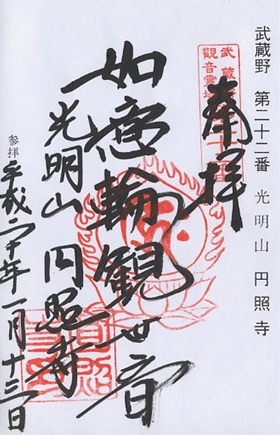 武蔵野 第二十二番 光明山 円照寺
奉拝
武蔵野
觀音霊場
如意輪観世音
光明山 円照寺
参拝 平成二十年一月十三日